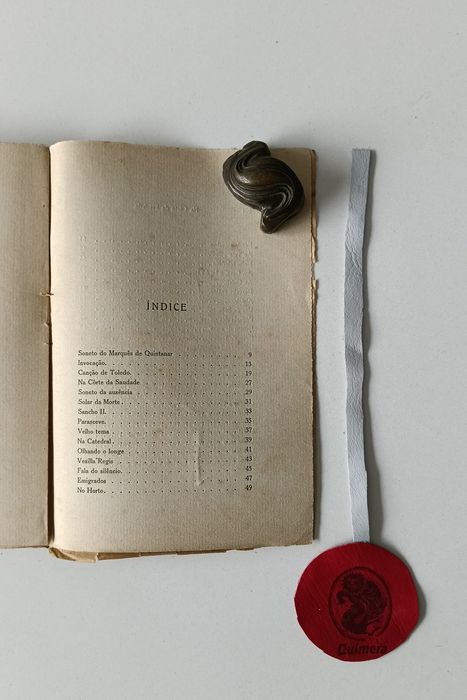 ÍNDICE
Soneto do Marquês de Quintanar 9
Invocação. 13
Canção de Toledo. 19
Na Côrte da Saudade 27
Soneto da ausência 29
Solar da Morte. 31
Sancho II. 33
Parasceve. 35
Velho tema 37
Na Catedral 39
Olhando o longe 41
Vexilla Regis 43
Fala do silêncio. 45
Emigrados 47
No Horto. 49
Quimera